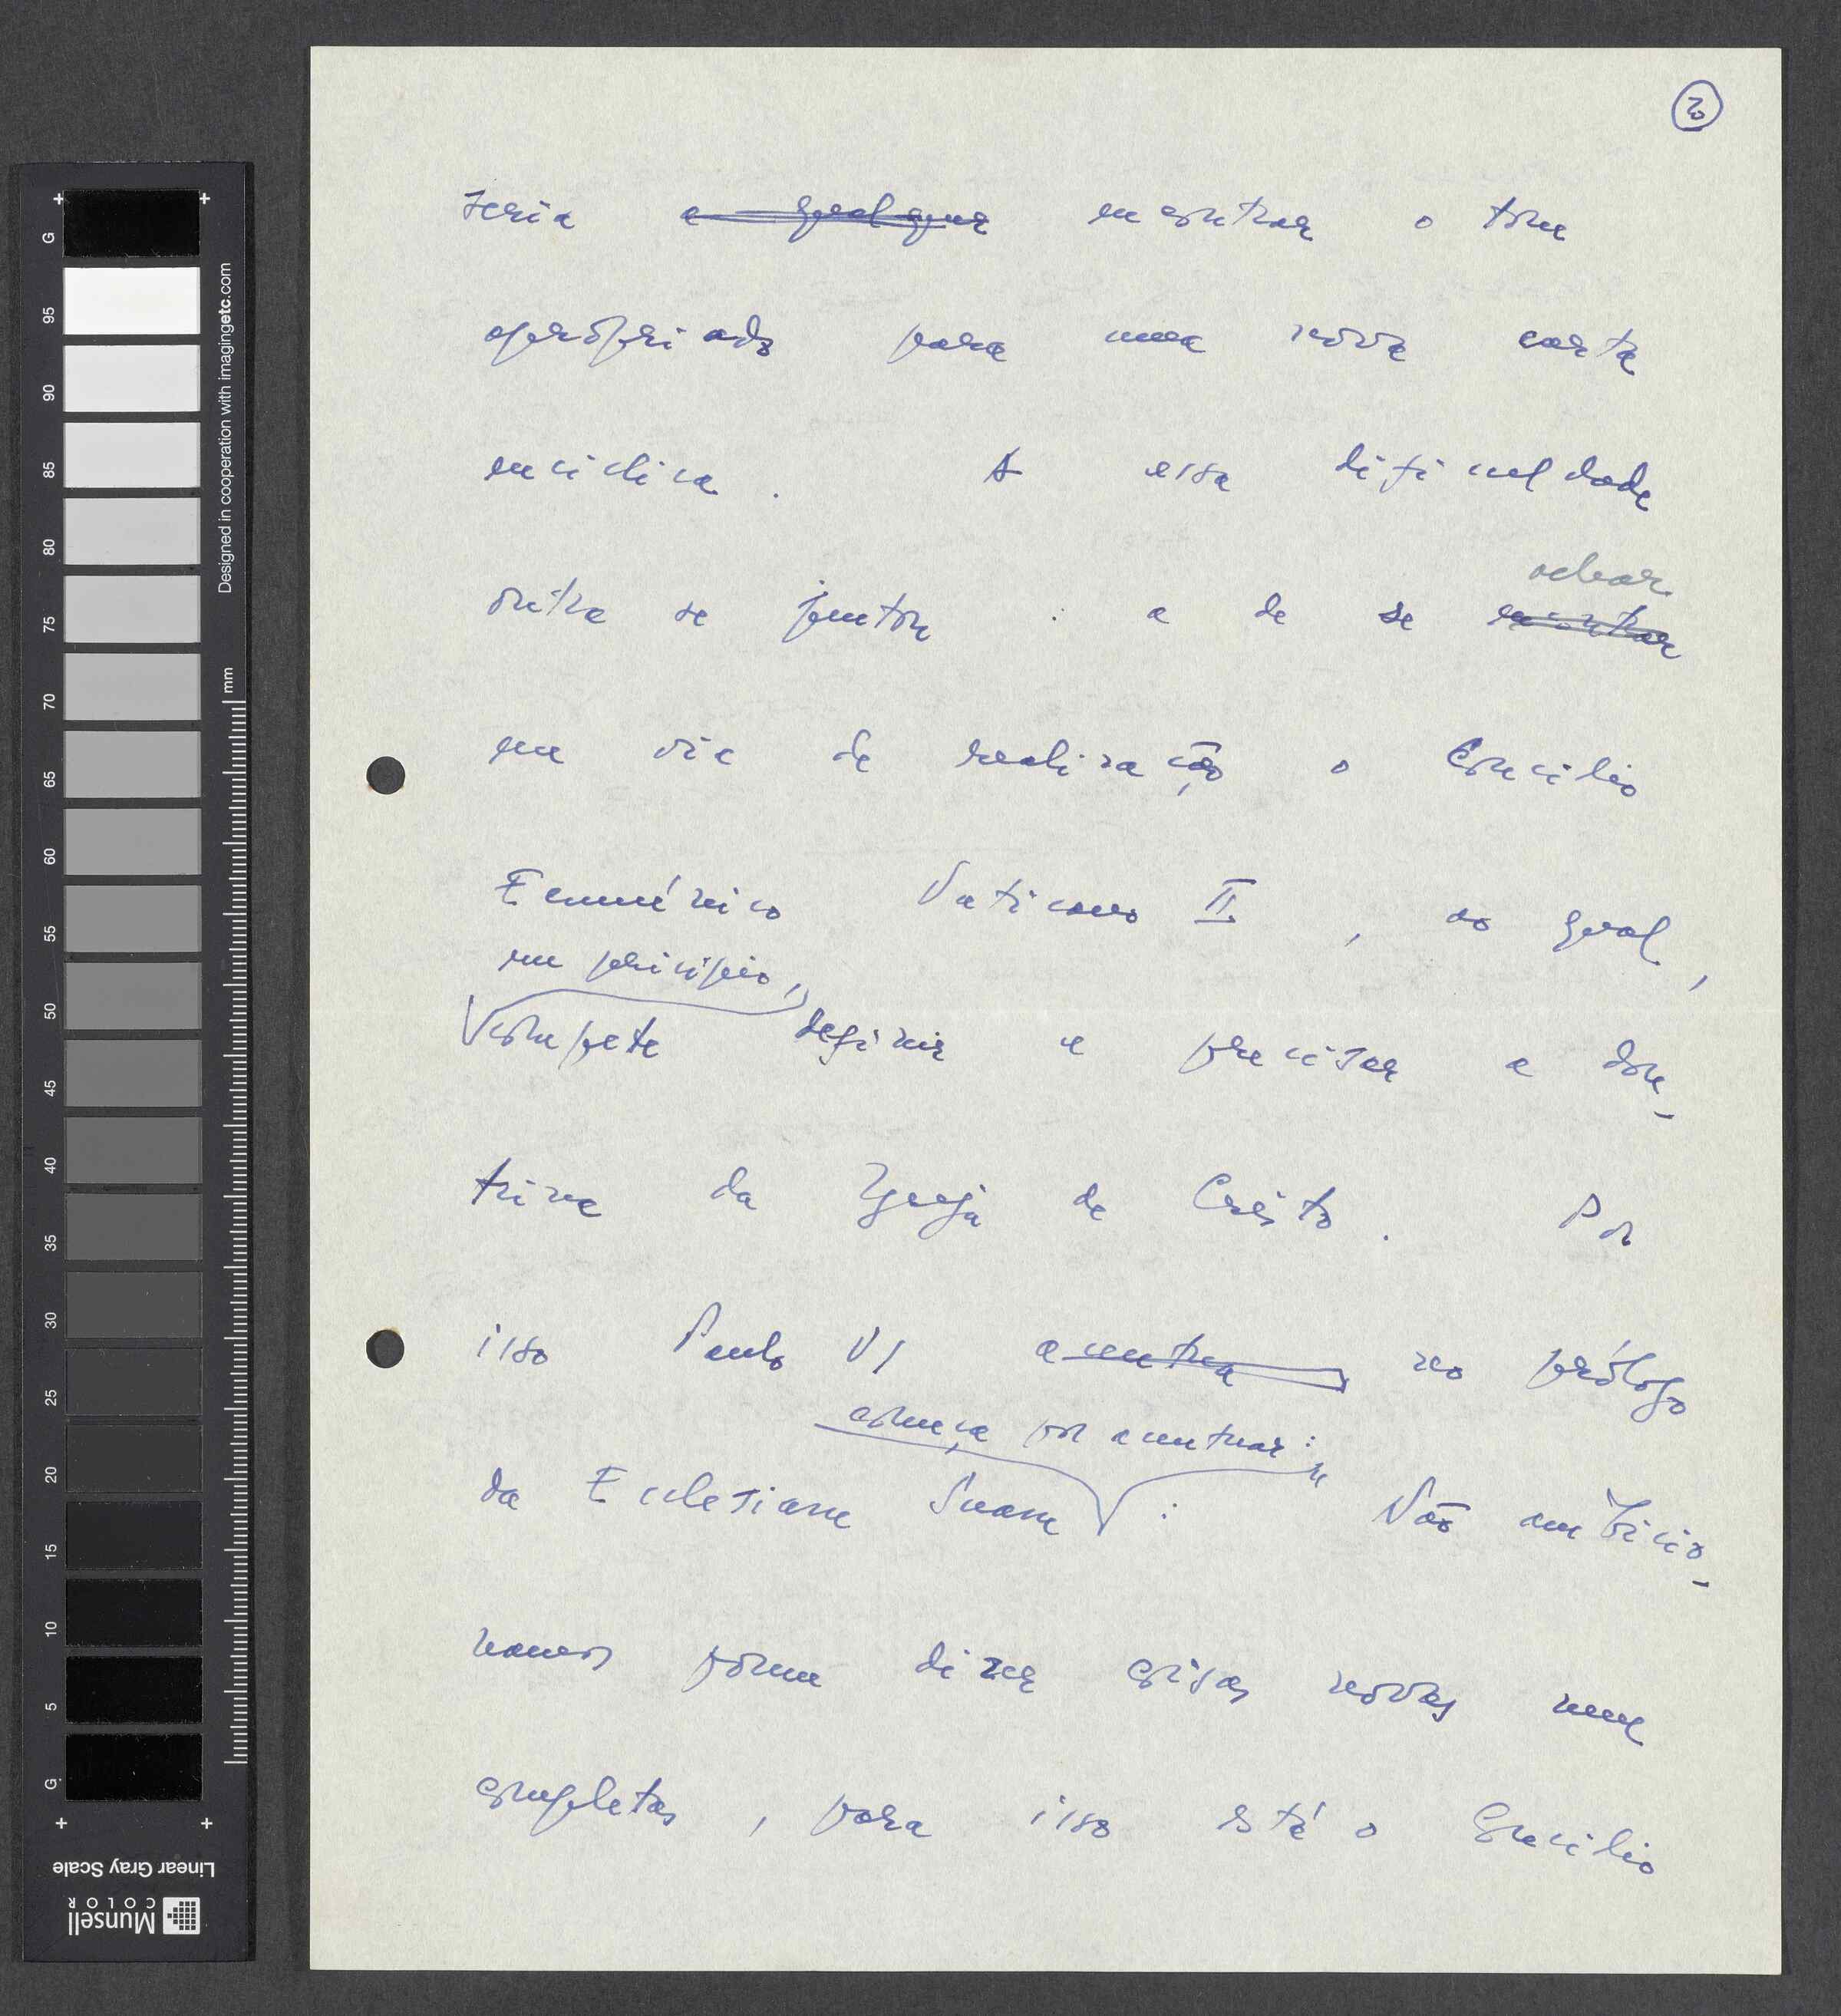 20
seria a qualquer encontrar o tom
apropriado para uma nova carta
encíclica. A essa dificuldade
achar
outra se juntou : a de se encontrar
em via de realização o Concílio
Ecuménico Vaticano II, ao qual,
em princípio,
compete definir e precisar a dou-
trina da Igreja de Cristo. Por
isso Paulo VI acentua no prólogo
começa por acentuar:
da Ecclesiam Suam : "Não ambicio-
namos porém dizer coisas novas nem
completas, para isso está o Concílio
G 95 90 85 80 75 70 65 60 55 50 45 40 35 30 25 20 15 10 5 G
Designed in cooperation with imagingetc.com
mm
Linear Gray Scale
Munsell
COLOR